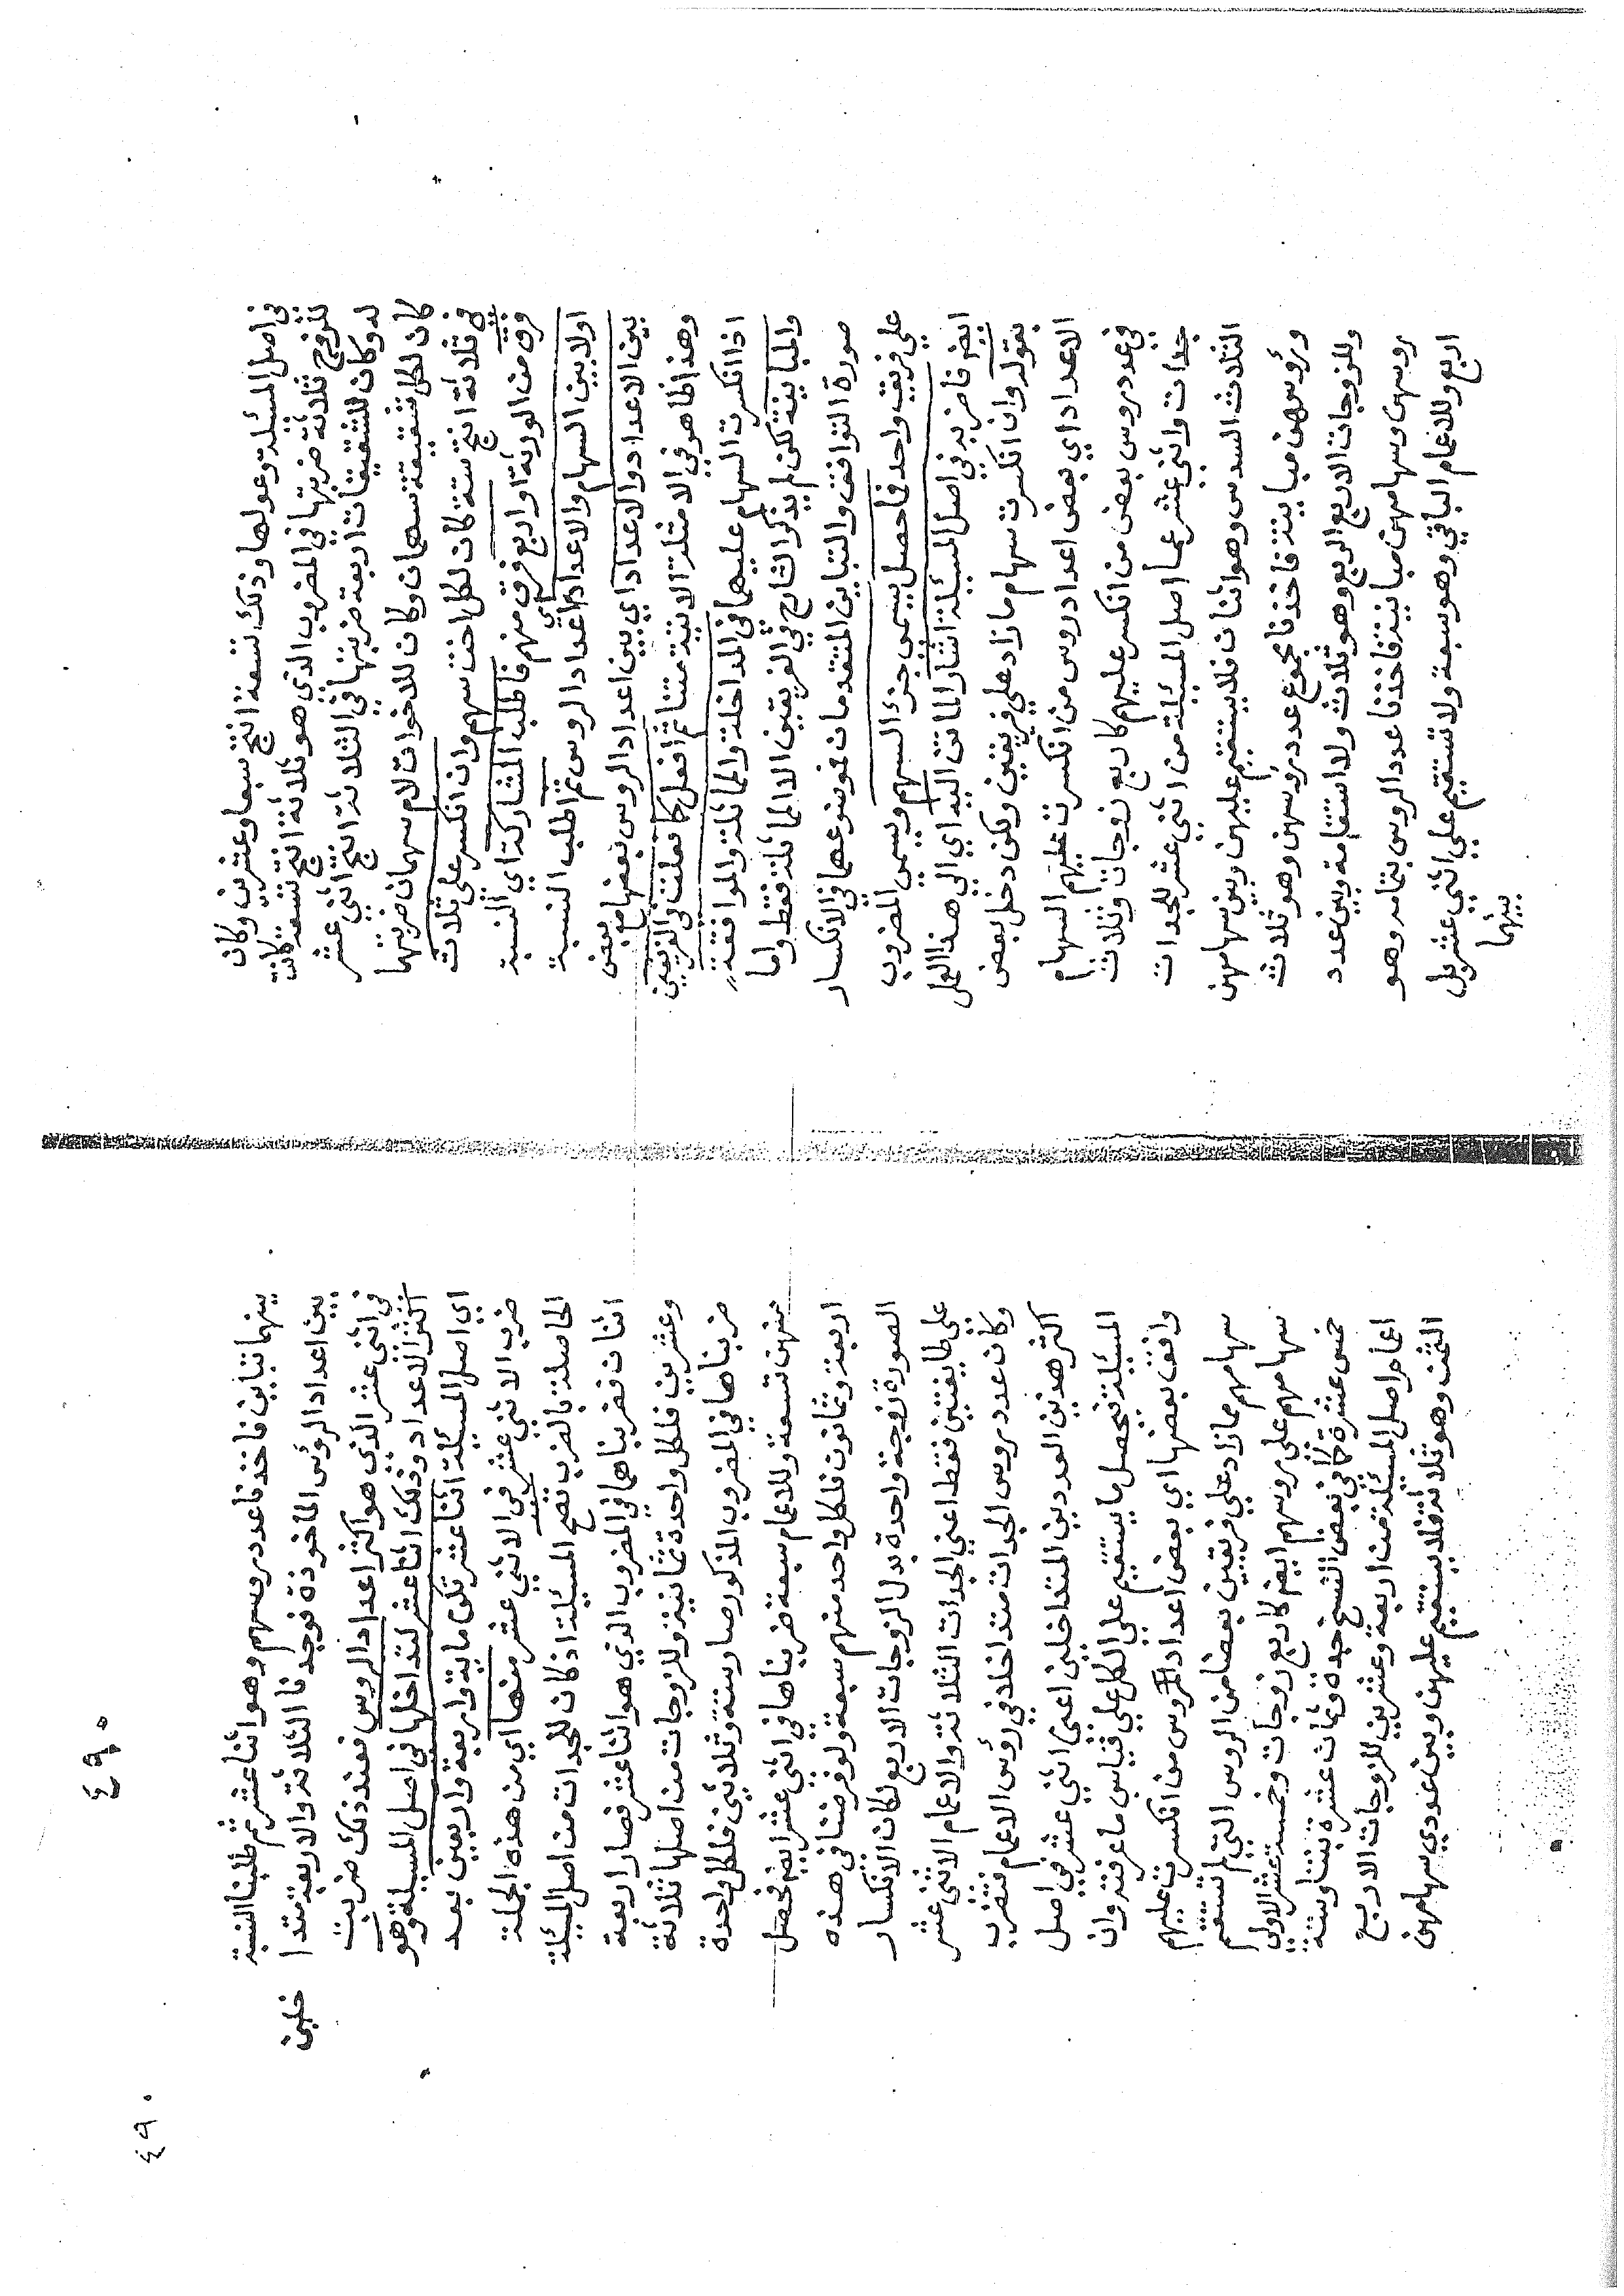 في اصل المسئلة وعولها وذلك تسعة انتج سبعا وعشرين وكان
للزوج ثلاثة ضربتها في المضروب الذي هو ثلاثة انتج تسعة كانت
له وكان للشقيقات اربعة ضربتها في الثلاثة انتج اثني عشر
كان لكل شقيقة سهمان وكان للاخوات لام سهمان ضربتهما
في ثلاثة انتج ستة كان لكل اخت سهم وان انكسر على ثلاث
فرق من الورثة او اربع فرق منهم فاطلب المشاركة اي النسبة
اولا بين السهام والاعداد اي اعداد الروس ثم اطلب النسبة
بين الاعداد والاعداد اي بين اعداد الروس بعضها مع بعض
وهذا ظاهر في الامثلة الاتية متنا ثم افعل كما فعلت في الفريقين
اذا انكسرت السهام عليهما في المداخلة والمماثلة والموافقة
والمباينة لكن لم يذكر الشارح في الفريقين الا المماثلة فقط واما
صورة التوافق والتباين المتقدمان فموضوعهما في الانكسار
على فريق واحد فما حصل يسمى جزء السهم ويسمى المضروب
ايضا فاضربه في اصل المسئلة اشار الماتن اليه اي الى هذا العمل
بقوله وان انكسرت سهام ما زاد على فريقين ولكن دخل بعض
الاعداد اي بعض اعداد روس من انكسرت عليهم السهام
في عدد روس بعض من انكسر عليهم كاربع زوجات وثلاث
جدات واثني عشر عما اصل المسئلة من اثني عشر للجدات
الثلاث السدس وهو اثنان فلا يستقيم عليهن وبين سهامهن
ورؤسهن مباينة فاخذنا مجموع عدد رؤسهن وهو ثلاث
وللزوجات الاربع الربع وهو ثلاث ولا استقامة وبين عدد
روسهن وسهامهن مباينة فاخذنا عدد الروس بتمامه وهو
اربع وللاعمام الباقي وهو سبعة ولا تستقيم على اثني عشر بل
بينهما
بينهما تباين فاخذنا عدد روسهم وهو اثنا عشر ثم طلبنا النسبة
بين اعداد الرؤس المأخوذة فوجدنا الثلاثة والاربعة متدا
خلين
في اثني عشر الذي هو اكثر اعداد الروس فعند ذلك ضربت
اكثر الاعداد وذلك اثنا عشر لتداخلها في اصل المسيلة وهو
اي اصل المسئلة اثنا عشر تكن ماية واربعة واربعين بعد
ضرب الاثني عشر في الاثني عشر فمنها اي من هذه الجملة
الحاصلة بالضرب تصح المسيلة اذ كان للجدات من اصل المسيلة
اثنان فضربناهما في المضروب الذي هو اثنا عشر فصار اربعة
وعشرين فلكل واحدة ثمانية وللزوجات من اصلها ثلاثة
ضربناها في المضروب المذكور صار ستة وثلاثين فلكل واحدة
منهن تسعة وللاعمام سبعة ضربناها في اثني عشر ايضا فحصل
اربعة وثمانون فلكل واحد منهم سبعة ولو فرضنا في هذه
الصورة زوجة واحدة بدل الزوجات الاربع لكان الانكسار
على طايفتين فقط اعني الجدات الثلاثة والاعمام الاثني عشر
وكان عدد روس الجدات متداخلا في رؤس الاعمام فتضرب
اكثر هذين العددين المتداخلين اعني اثني عشر في اصل
المسيلة تحصل ما يستقيم على الكل على قياس ما عرفته وان
وافق بعضها اي بعض اعداد الروس من انكسرت عليهم
سهامهم مما زاد على فريقين بعضا من الروس التي لم تستقم
سهامهم على روسهم ايضا كاربع زوجات وخمسة عشر الاولى
خمس عشرة كما في بعض النسخ جدة وثمان عشرة بنتا وستة
اعمام اصل المسيلة من اربعة وعشرين للزوجات الاربع
الثمن وهو ثلاثة فلا يستقيم عليهن وبين عددي سهامهن
٤٩٠
٤٩٠